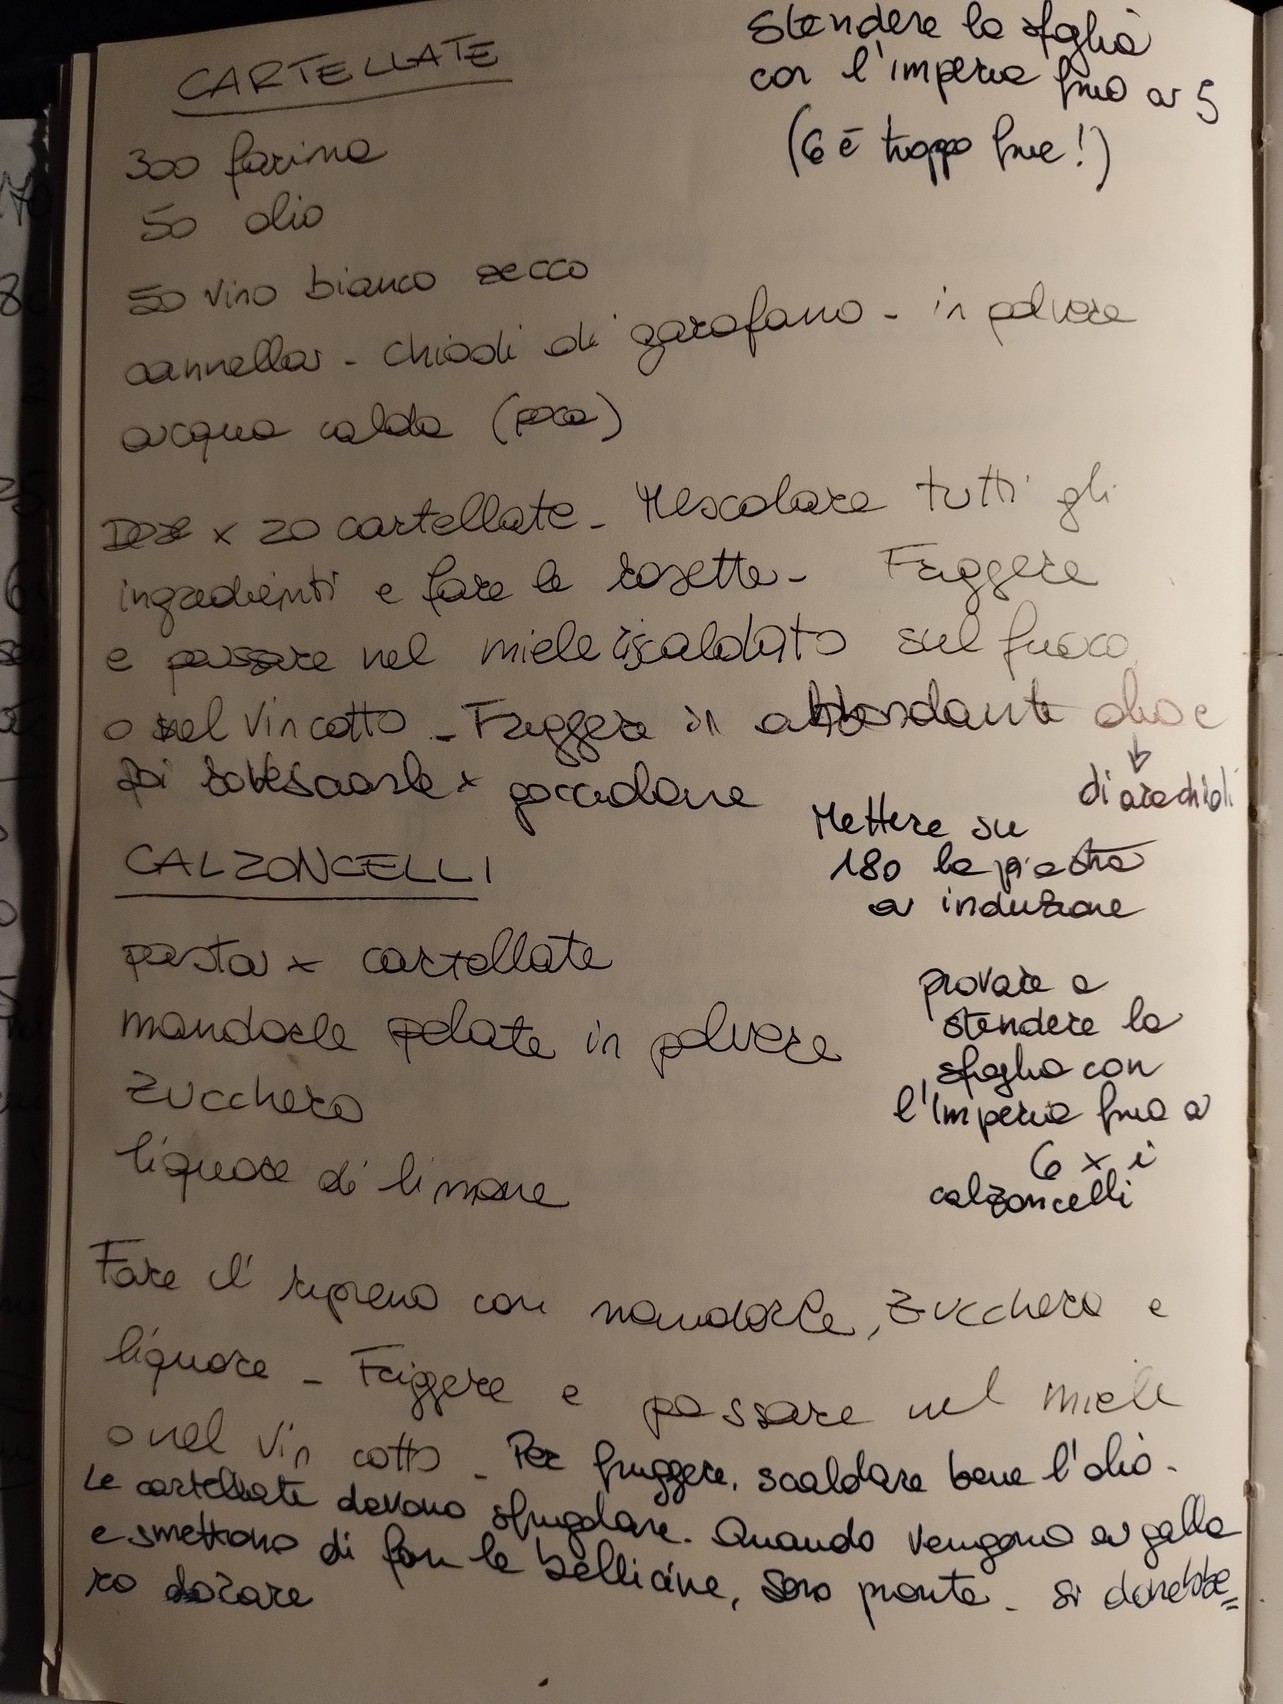 CARTELLATE
Stendere la sfoglia
con l'imperia fino a 5
(6 è troppo fine!)
300 farina
50 olio
50 vino bianco secco
cannella - chiodi di garofano - in polvere
acqua calda (poca)
Dose x 20 cartellate - Mescolare tutti gli
ingredienti e fare le rosette - Friggere
e passare nel miele riscaldato sul fuoco
o nel vin cotto - Friggere in abbondante olio e
di arachidi
poi rovesciarle x gocciolare
Mettere su
180 la piastra
a induzione
CALZONCELLI
pasta x cartellate
mandorle pelate in polvere
zucchero
liquore di limone
provare a
stendere la
sfoglia con
l'imperia fino a
6 x i
calzoncelli
Fare il ripieno con mandorle, zucchero e
liquore - Friggere e passare nel miele
o nel vin cotto - Per friggere, scaldare bene l'olio -
Le cartellate devono sfrigolare. Quando vengono a galla
e smettono di fare le bollicine, sono pronte - si dovrebbe=
ro dorare